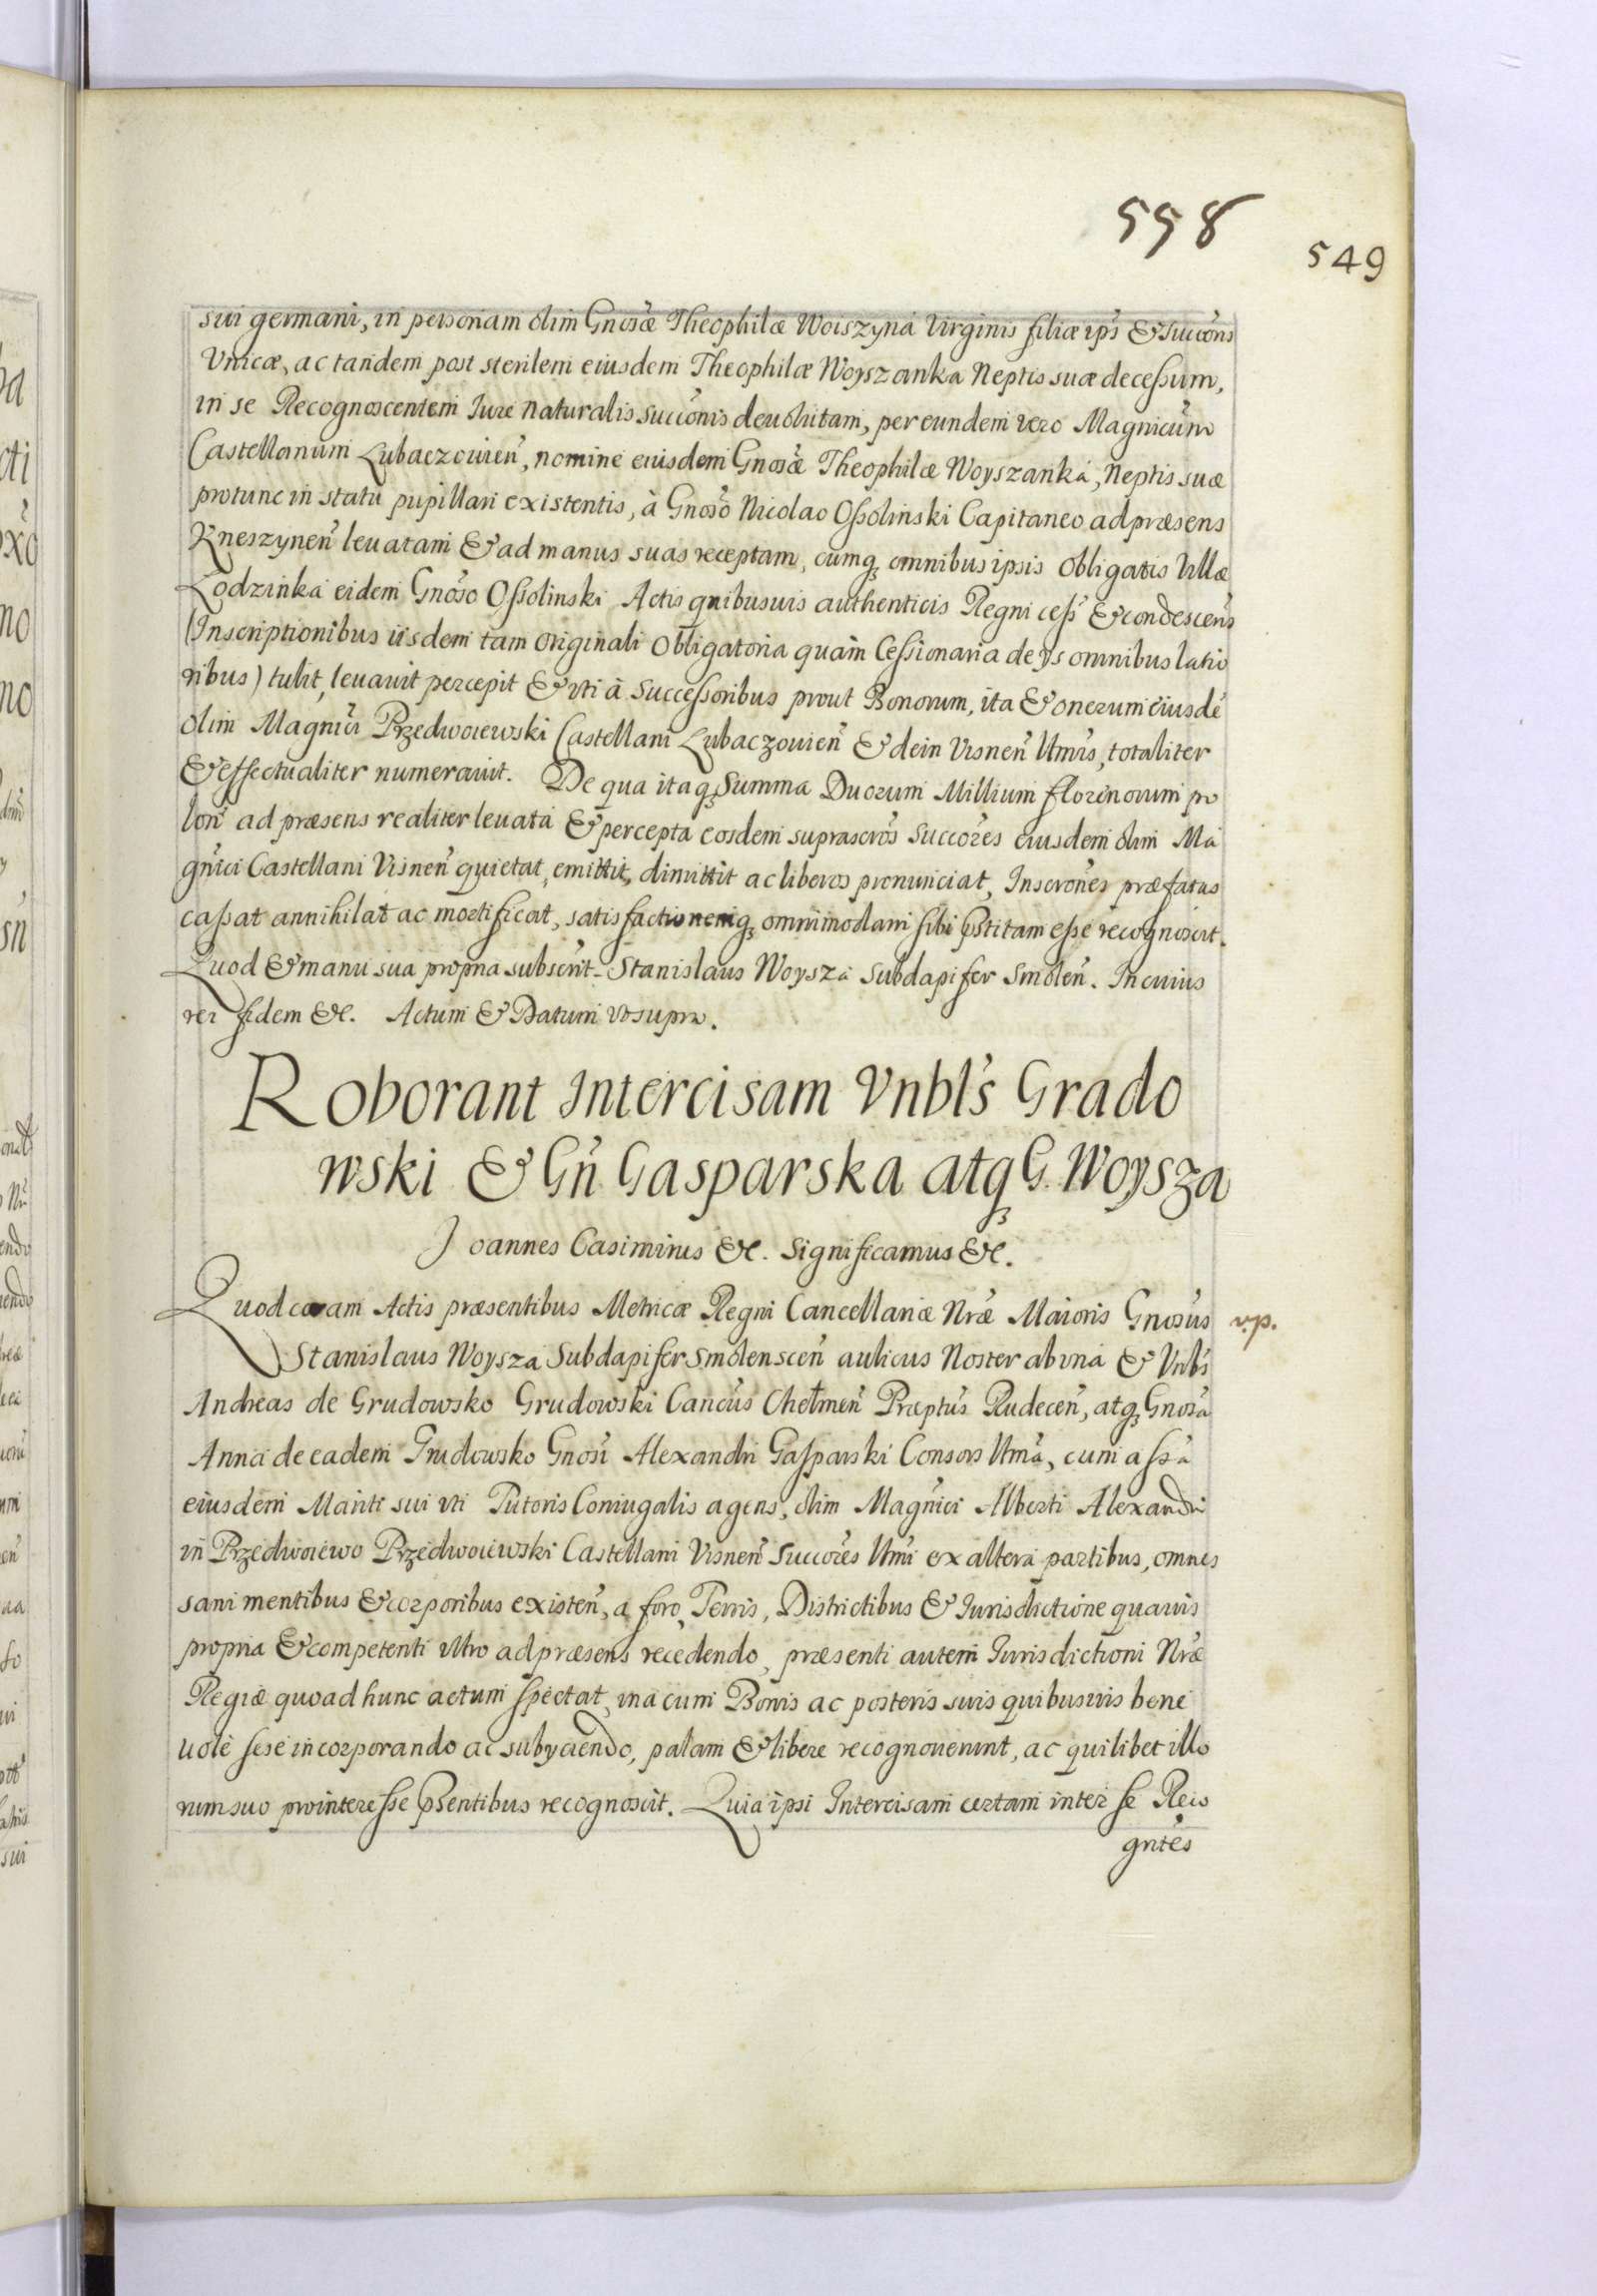 558
549
sui germani, in personam olim Gnosæ Theophilæ Woiszyná Virginis filiæ ips̃ & Succõris
Vnicæ, ac tandem post sterilem eiusdem Theophilæ Woyszanka Neptis suæ decessum,
in se Recognoscentem Jure naturalis succõnis deuolutam, per eundem vero Magnicũm
Castellanum Lubaczouień, nomine eiusdem Gnosæ Theophilæ Woyszanká, Neptis suæ
protunc in statu pupillari existentis, à Gnoso Nicolao Ossolinski Capitaneo ad præsens
Kneszyneń leuatam & ad manus suas receptam, cumq; omnibus ipsis obligatis Villæ
Lodzinká eidem Gnoso Ossolinski Actis quibusuis authenticis Regni cess̃ & condescens̃
(Inscriptionibus iisdem tam originali Obligatoria quàm Cessionaria de ijs omnibus latio
ribus) tulit, leuauit percepit & vti à Successoribus prout Bonorum, ita & onerum eiusdẽ
olim Magnici Przedwoiewski Castellani Lubaczouień & dein Visneń Vtmis, totaliter
& effectualiter numerauit. De qua itaq; Summa Duorum Millium florenorum po
loñ ad præsens realiter leuata & percepta eosdem suprascros Succores eiusdem olim Ma
gnici Castellani Visneń quietat, emittit, dimittit ac liberos pronunciat, Inscrones præfatas
cassat annihilat ac mortificat, satisfactionemq; omnimodam sibi pstitam esse recognoscit.
Quod & manu sua propria subscrit. Stanislaus Woyszá Subdapifer Smoleń. In cuius
rei fidem &c. Actum & Datum vt supra.
Roborant Intercisam Vnbl's Grado
wski & Gñ Gasparska atq; G. Woysza
Joannes Casimirus &c. Significamus &c.
Quod coram Actis præsentibus Metricæ Regni Cancellariæ Nræ Maioris Gnosus
v.p.
Stanislaus Woyszá Subdapifer Smolensceń aulicus Noster ab vná & Vnbl's
Andreas de Grudowsko Grudowski Cancus Chełmeń Præptus Rudeceń, atq; Gnosa
Anna de eadem Grudowsko Gnosi Alexandri Gasparski Consors Vtma, cum assa
eiusdem Mariti sui vti Tutoris Coniugalis agens, olim Magnici Alberti Alexandri
in Przedwoiewo Przedwoiewski Castellani Visneń Succores Vtmi ex altera partibus, omnes
sani mentibus & corporibus existeń, a foro, Terris, Districtibus & Jurisdictione quauis
propria & competenti vltro ad præsens recedendo, præsenti autem Jurisdictioni Nræ
Regiæ quoad hunc actum spectat, vna cum Bonis ac posteris suis quibusuis bene
uolè sese incorporando ac subyciendo, palam & libere recognouerunt, ac quilibet illo
rum suo prointeresse psentibus recognoscit. Quia ipsi Intercisam certam inter se Reco
gntes